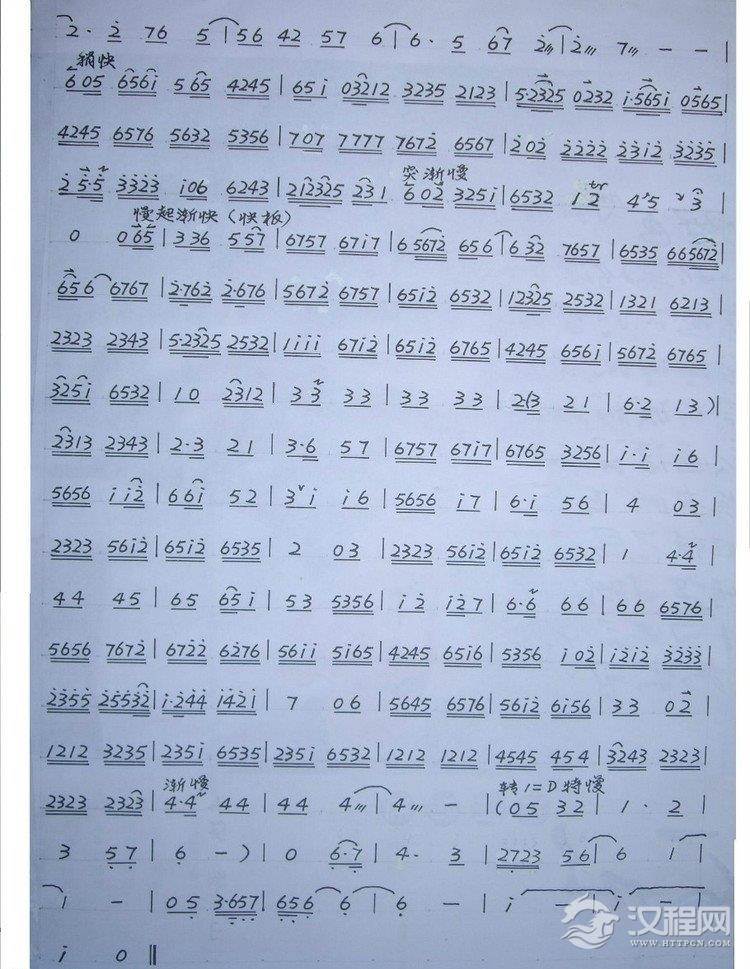 2̇· 2̇ 76 5 | 56 42 57 6 | 6· 5 67 2̇ | 2̇ 7 - - |
稍快
605 656i 565 4245 | 65i 03212 3235 2123 | 5·2325 0232 i·565i 0565 |
4245 6576 5632 5356 | 707 7777 7672̇ 6567 | 2̇02̇ 2̇2̇2̇2̇ 2̇3̇i2̇ 3̇2̇3̇5 |
突渐慢
2̇5·5 3̇3̇2̇3̇ i06 6243 | 212325 231 602̇ 325i | 6532 12 tr 45 3 |
慢起渐快(快板)
0 065 | 336 557 | 6757 67i7 | 65672̇ 656 | 632 7657 | 6535 665672̇ |
656 6767 | 2̇·762̇ 2̇·676 | 5672̇ 6757 | 65i2̇ 6532 | 12325 2532 | 1321 6213 |
2323 2343 | 5·2325 2532 | 1iii 67i2̇ | 65i2̇ 6765 | 4245 656i | 5672̇ 6765 |
325i 6532 | 10 2312 | 33 33 | 33 33 | 2·(3 21 | 6·2 13) |
2313 2343 | 2·3 21 | 3·6 57 | 6757 67i7 | 6765 3256 | i·i i6 |
5656 ii2̇ | 66i 52 | 3i i6 | 5656 i7 | 6·i 56 | 4 03 |
2323 56i2̇ | 65i2̇ 6535 | 2 03 | 2323 56i2̇ | 65i2̇ 6532 | 1 4·4 |
44 45 | 65 65i | 53 5356 | i2̇ i2̇7 | 6·6 66 | 66 6576 |
5656 7672̇ | 672̇2̇ 6276 | 56ii 5i65 | 4245 65i6 | 5356 i02̇ | i2̇i2̇ 3̇2̇3̇3̇ |
2̇3̇55 2̇553̇2̇ | i·2̇44 i42̇i | 7 06 | 5645 6576 | 56i2̇ 6i56 | 33 02̇ |
1212 3235 | 235i 6535 | 235i 6532 | 1212 1212 | 4545 454 | 3243 2323 |
渐慢 转1=D特慢
2323 2323 | 4·4 44 | 44 4 | 4 - | (05 32 | 1· 2 |
3 57 | 6 -) | 0 6·7 | 4· 3 | 2723 56 | 6 1 |
1 - | 05 3·657 | 656 6 | 6 - | i - | i - |
i 0 ‖
汉程网
WWW.HTTPCN.COM